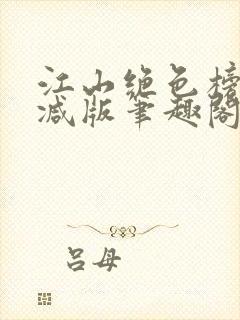 江山绝色榜
减版笔趣阁
吕母